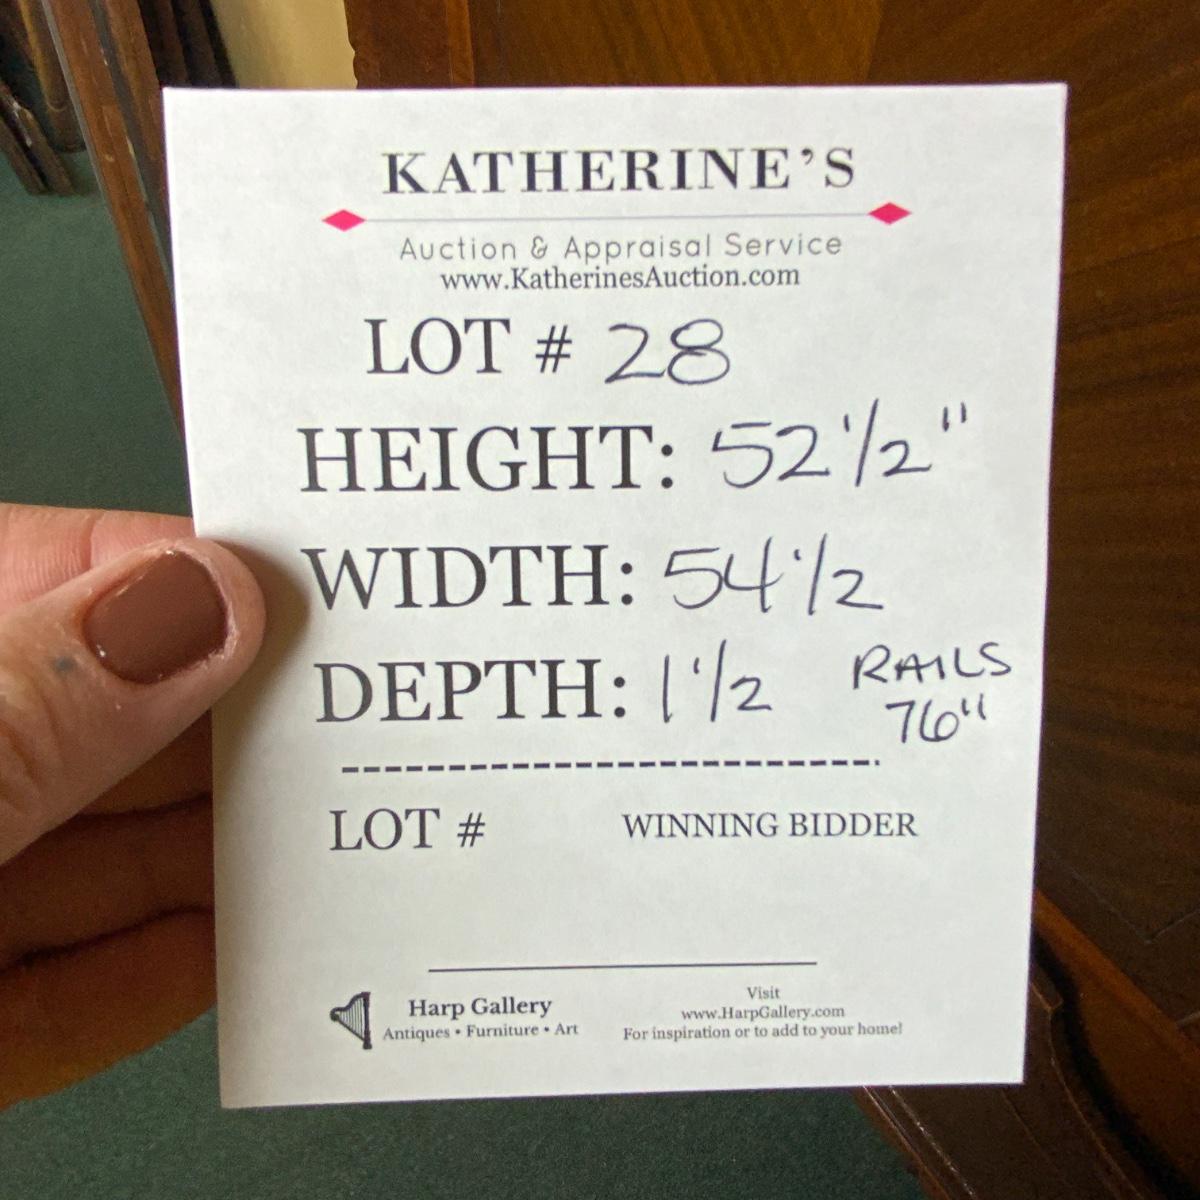 KATHERINE'S
Auction & Appraisal Service
www.KatherinesAuction.com
LOT # 28
HEIGHT: 52 1/2"
WIDTH: 54 1/2
DEPTH: 1 1/2
RAILS
76"
LOT # WINNING BIDDER
Harp Gallery
Antiques • Furniture • Art
Visit
www.HarpGallery.com
For inspiration or to add to your home!